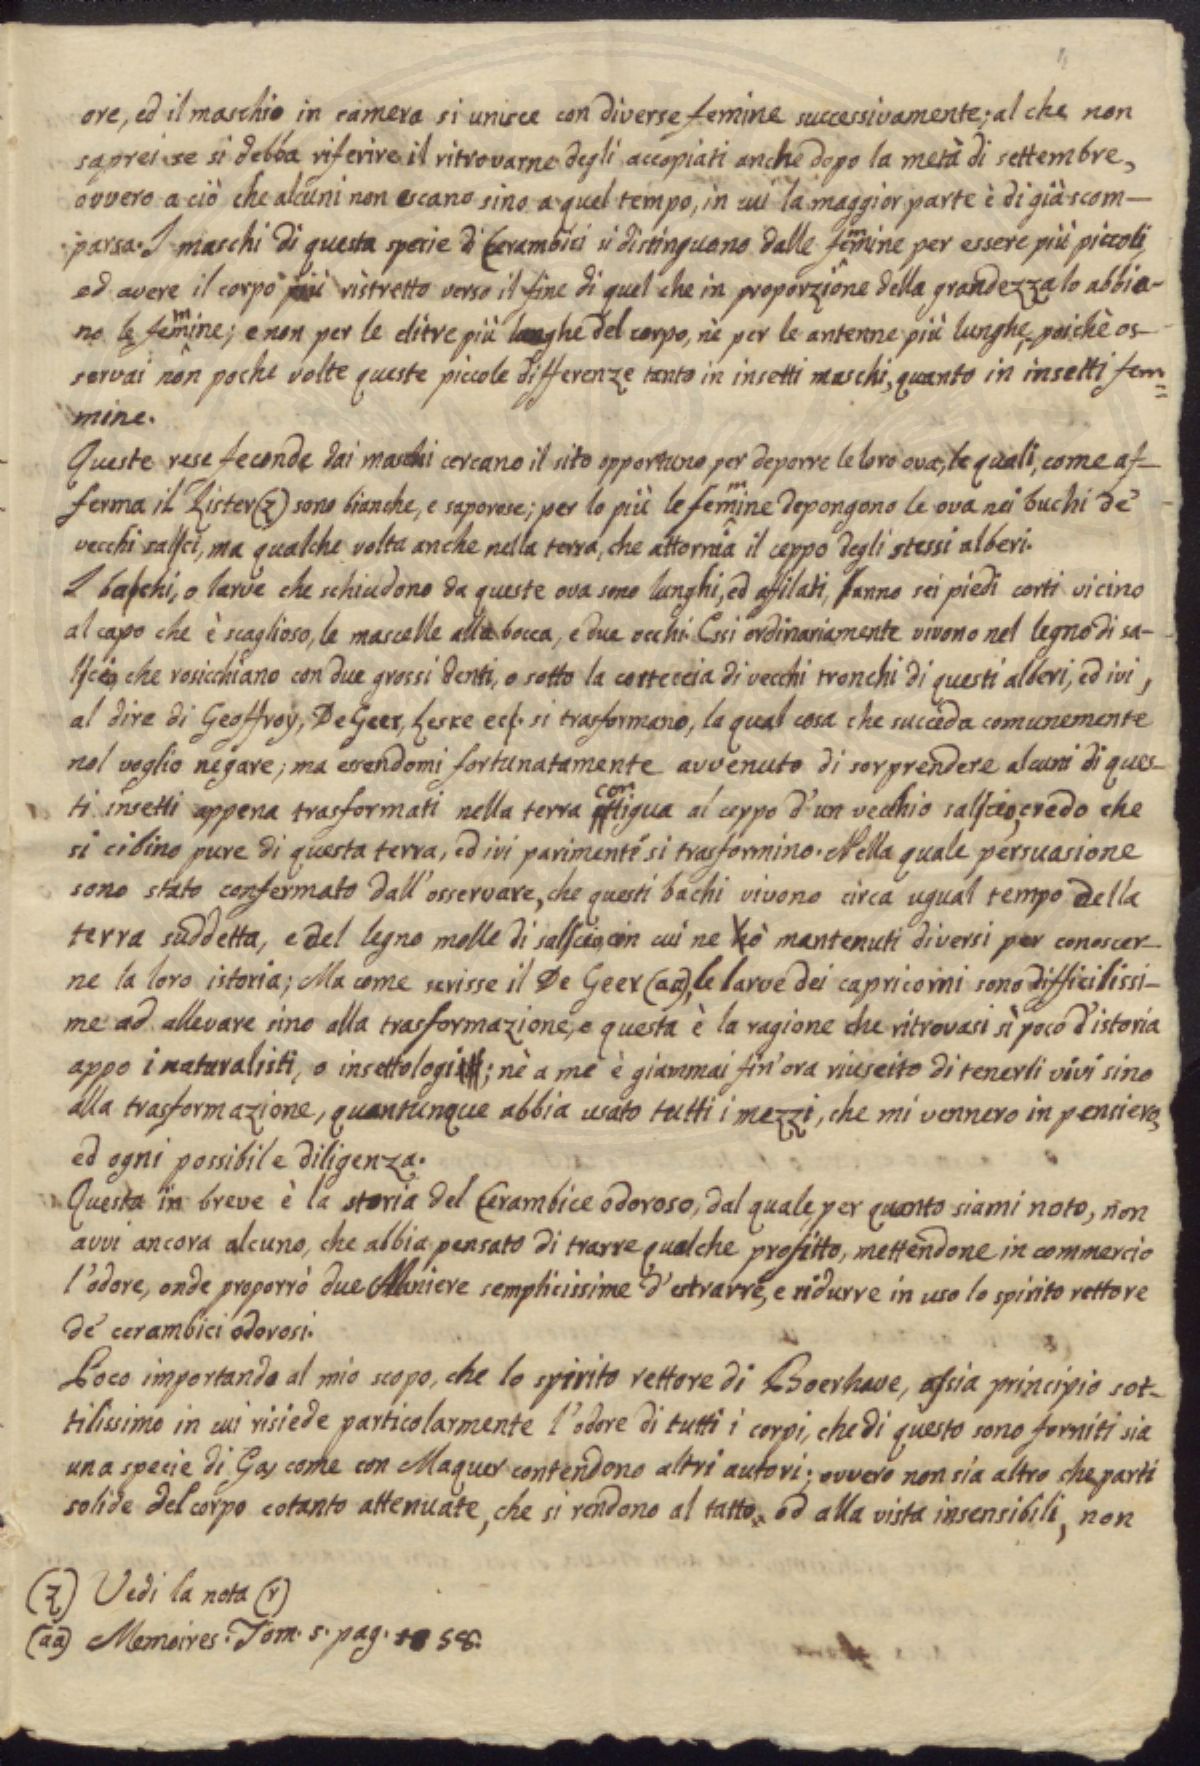 ore, ed il maschio in camera si unisce con diverse femine successivamente; al che non
saprei se si debba riferire il ritrovarne degli accopiati anche dopo la metà di settembre,
ovvero a ciò che alcuni non escano sino a quel tempo, in cui la maggior parte è di già scom-
parsa. I maschi di questa specie di Cerambici si distinguono dalle femmine per essere più piccoli
ed avere il corpo più ristretto verso il fine di quel che in proporzione della grandezza lo abbia-
no le femmine; e non per le elitre più lunghe del corpo, nè per le antenne più lunghe, poichè os-
servai non poche volte queste piccole differenze tanto in insetti maschi, quanto in insetti fem=
mine.
Queste rese feconde dai maschi cercano il sito opportuno per deporre le loro ova, le quali, come af-
ferma il Lister (z) sono bianche, e saporose; per lo più le femmine depongono le ova nei buchi de'
vecchi salici, ma qualche volta anche nella terra, che attornia il ceppo degli stessi alberi.
I bachi, o larve che schiudono da queste ova sono lunghi, ed afilati, anno sei piedi corti vicino
al capo che è scaglioso, le mascelle alla bocca, e due occhi. Essi ordinariamente vivono nel legno di sa-
lici che rosicchiano con due grossi denti, o sotto la corteccia di vecchi tronchi di questi alberi, ed ivi,
al dire di Geoffroy, De Geer, Leske ec. si trasformano, la qual cosa che succeda comunemente
nol voglio negare; ma essendomi fortunatamente avvenuto di sorprendere alcuni di ques-
ti insetti appena trasformati nella terra contigua al ceppo d'un vecchio salcio, credo che
si cibino pure di questa terra, ed ivi parimenti si trasformino. Nella quale persuasione
sono stato confermato dall'osservare, che questi bachi vivono circa ugual tempo della
terra suddetta, e del legno molle di salcio, con cui ne ò mantenuti diversi per conoscer-
ne la loro istoria; Ma come scrisse il De Geer (aa), le larve dei capricorni sono difficilissi-
me ad allevare sino alla trasformazione, e questa è la ragione che ritrovasi sì poco d'istoria
appo i naturalisti, o insettologi; nè a me è giammai fin'ora riuscito di tenerli vivi sino
alla trasformazione, quantunque abbia usato tutti i mezzi, che mi vennero in pensiero,
ed ogni possibile diligenza.
Questa in breve è la storia del Cerambice odoroso, dal quale, per quanto siami noto, non
avvi ancora alcuno, che abbia pensato di trarre qualche profitto, mettendone in commercio
l'odore, onde proporrò due Maniere semplicissime d'estrarre, e ridurre in uso lo spirito rettore
de' cerambici odorosi.
Poco importando al mio scopo, che lo spirito rettore di Boerhave, ossia principio sot-
tilissimo in cui risiede particolarmente l'odore di tutti i corpi, che di questo sono forniti sia
una specie di Gas come con Maquer contendono altri autori; ovvero non sia altro che parti
solide del corpo cotanto attenuate, che si rendono al tatto, ed alla vista insensibili, non
(z) Vedi la nota (r)
(aa) Memoires. Tom. 5. pag. 58.